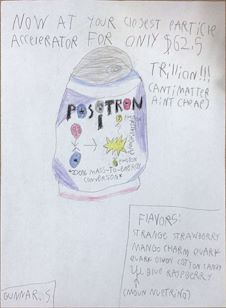 NOW AT YOUR CLOSEST PARTICLE
ACCELERATOR FOR ONLY $62.5
TRILLION!!!
(ANTIMATTER
AINT CHEAP)
POSITRON
*200% MASS-TO-ENERGY
CONVERSION*
FLAVORS:
STRANGE STRAWBERRY
MANGO CHARM QUARK
QUARK DOWN COTTON CANDY
BLUE RASPBERRY
(MUON NUETRINO)
GUNNAR.S